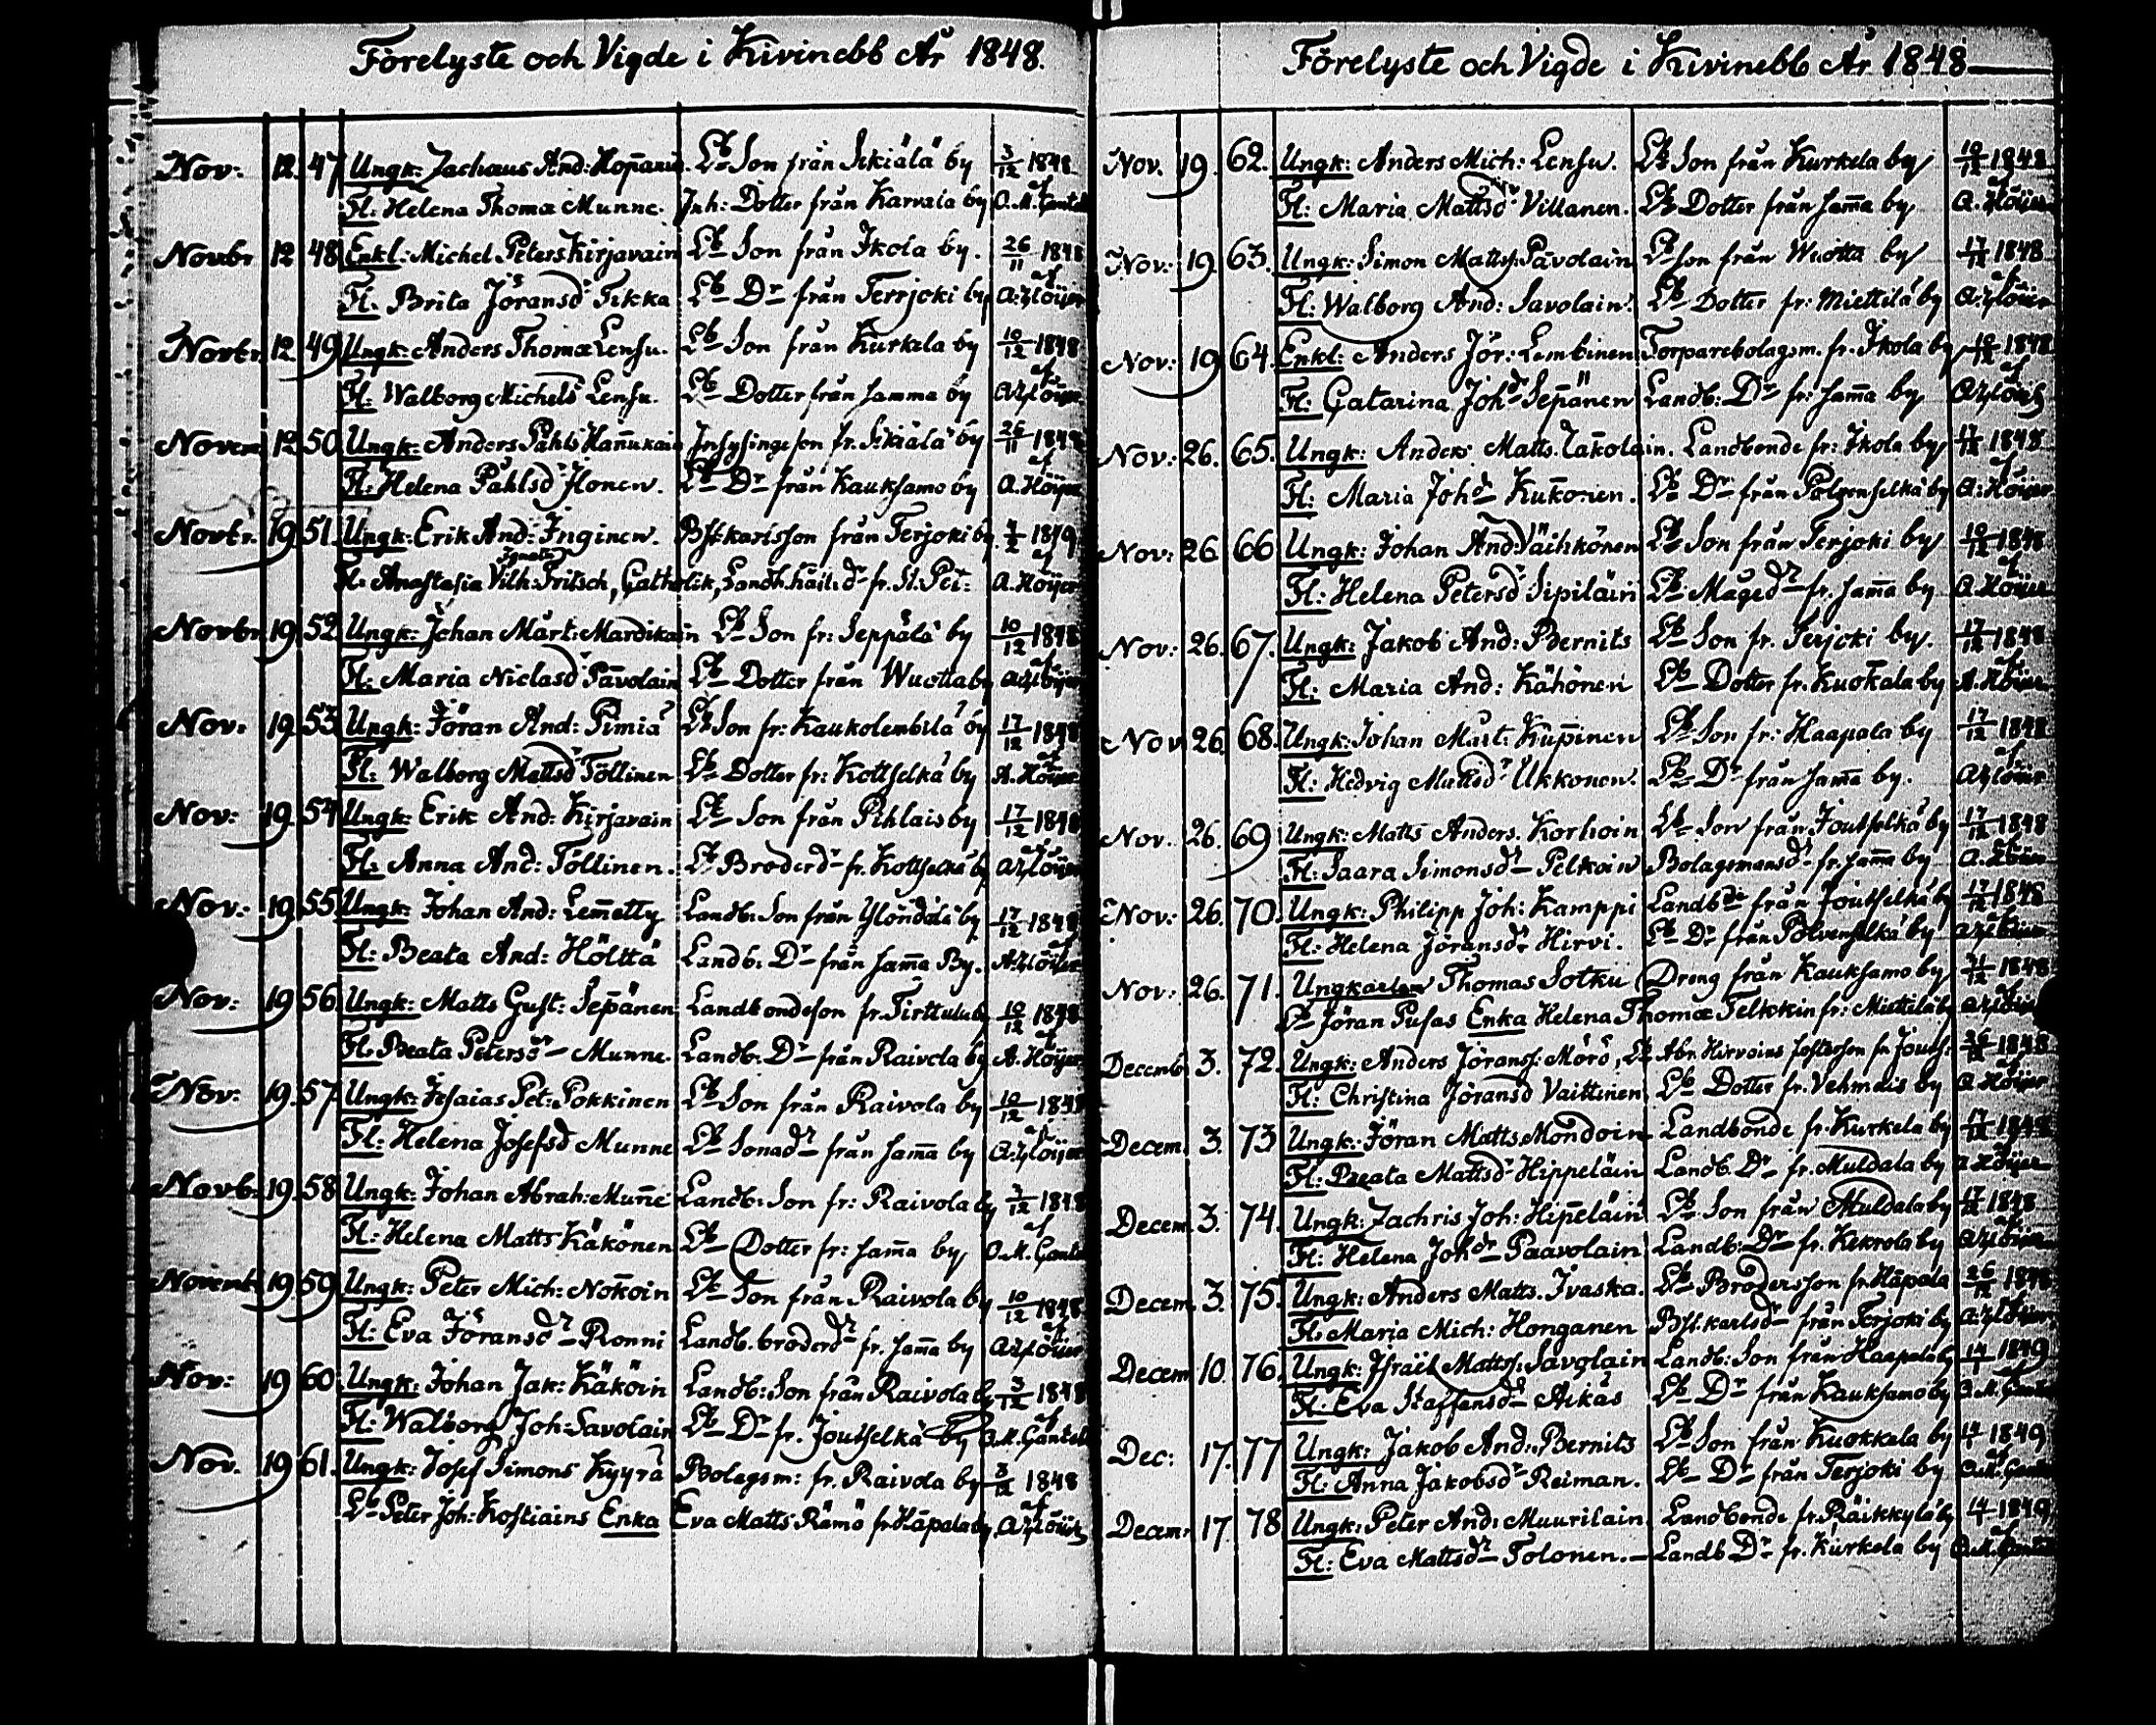 Förelyste och Vigde i Kivinebb År 1848.
Nov: 12. 47 Ungk: Zachæus And: Hopanen Lb Son från Sikiälä by 3/12 1848
Fl: Helena Thomæ Munne. Inh: Dotter från Karvala by af O. M. Gantell
Novbr 12 48 Enkl: Michel Peters Kirjavain Lb Son från Ikola by. 26/11 1848
Fl: Brita Jöransdr Tikka Lb Dr från Terrjoki by af A. Höijer
Novbr. 12 49 Ungk: Anders Thomæ Lensu. Lb Son från Kurkela by 10/12 1848
Fl: Walborg Michels Lensu. Lb Dotter från samma by af A. Höijer
Novem 12 50 Ungk: Anders Påhls Hañukain Inhysinge son fr. Sikiälä by 26/11 1848
Fl: Helena Påhlsdr Ilonen. Lb Dr från Kauksamo by af A. Höijer
Novbr. 19. 51. Ungk: Erik And: Inginen. Bst.karlsson från Terjoki by. 4/2 1849
Fl: Anastasia Ignatz Vilh: Fritsch, Catholik, Landh. dr fr. St: Pet: af A. Höijer
Novbr 19. 52 Ungk: Johan Märt: Mardikain Lb Son fr: Seppälä by 10/12 1848
Fl: Maria Niclasdr Pavolain Lb Dotter från Wuotta by af A. Höijer
Nov: 19. 53 Ungk: Jöran And: Pimiä Lb Son fr: Kaukolembilä by 17/12 1848
Fl: Walborg Mattsdr Töllinen Lb Dotter fr: Kottselkä by af A. Höijer
Nov: 19. 54 Ungk: Erik And: Kirjavain Lb Son från Pihlais by 17/12 1848
Fl: Anna And: Töllinen. Lb Broderdr fr. Kottselkä by af A. Höijer
Nov: 19. 55 Ungk: Johan And: Lemetty Landb: Son från Ylöndälä by 17/12 1848
Fl: Beata And: Hölttä Landb: Dr från sam̄a By. af A. Höijer
Nov: 19 56 Ungk: Matts Gust: Sepänen Landbondeson fr. Tirttula by 10/12 1848
Fl: Beata Petersdr Munne. Landb: Dr från Raivola by af A. Höijer
Nov: 19. 57 Ungk: Esaias Pet: Pokkinen Lb Son från Raivola by 10/12 1848
Fl: Helena Josefsd Munne Lb Sonadr från sam̄a by af A. Höijer
Novb. 19. 58 Ungk: Johan Abrah: Mun̄e Landb: Son fr: Raivola by 3/12 1848
Fl: Helena Matts Käkönen Lb Dotter fr: sam̄a by af O. M. Gantell
Novemb. 19 59 Ungk: Peter Mich: Nok̄oin Lb Son från Raivola by 10/12 1848
Fl: Eva Jöransdr Ronni Landb. broderdr fr. sam̄a by af A. Höijer
Nov: 19 60 Ungk: Johan Jak: Käköin Landb: Son från Raivola by 3/12 1848
Fl: Walborg Joh: Savolain Lb Dr fr. Joutselkä by af O. M. Gantell
Nov. 19 61. Ungk: Josef Simons Kyyrä Bolagsm: fr. Raivola by 3/12 1848
Lb Peter Joh: Kostiains Enka Eva Matts Rämö fr. Häpala by af A. Höijer
Förelyste och Vigde i Kivinebb År 1848
Nov. 19. 62. Ungk: Anders Mich: Lensu. Lb Son från Kurkela by 10/12 1848
Fl: Maria Mattsdr Villanen. Lb Dotter från sam̄a by af A. Höijer
Nov: 19. 63. Ungk: Simon Matts: Pavolain Lb Son från Wuotta by 17/12 1848
Fl: Walborg And: Savolain. Lb Dotter fr: Miettilä by af A. Höijer
Nov: 19 64. Enkl: Anders Jör: Lembinen Torparebolagsm. fr. Ikola by 10/12 1848
Fl: Catarina Johdr Sepänen Landb: Dr fr: sam̄a by af A. Höijer
Nov: 26. 65. Ungk: Anders Matts. Takolain. Landbonde fr: Ikola by 17/12 1848
Fl: Maria Johdr Kuk̄onen. Lb Dr från Polvenselkä by af A: Höijer
Nov: 26 66 Ungk: Johan And: Väihkönen Lb Son från Terjoki by 10/12 1848
Fl: Helena Petersdr Sipiläin Lb Mågedr fr. sam̄a by af A. Höijer
Nov: 26. 67. Ungk: Jakob And: Bernits Lb Son fr. Terjoki by. 17/12 1848
Fl: Maria And: Kähönen Lb Dotter fr. Kuokala by af A. Höijer
Nov 26. 68. Ungk: Johan Märt: Kup̄inen Lb Son fr: Haapala by 17/12 1848
Fl: Hedvig Mattsdr Ukkonen. Lb Dr från sam̄a by. af A. Höijer
Nov. 26. 69 Ungk: Matts Anders. Korhoin Lb Son från Joutselkä by 17/12 1848
Fl: Saara Simonsdr Pelkoin Bolagsmansdr fr. sam̄a by af A. Höijer
Nov: 26. 70. Ungk: Philipp Joh: Kamppi Landbde från Joutselkä by 17/12 1848
Fl: Helena Jöransdr Hirvi. Lb Dr från Polvenselkä by af A. Höijer
Nov: 26. 71. Ungkarlen Thomas Sotku Dreng från Kauksamo by 31/12 1848
Lb Jöran Pusas Enka Helena Thomæ Telkkin fr: Miettilä by af A. Höijer
Decemb. 3. 72. Ungk: Anders Jörans: Mörö, Lb Abr. Hirvoins fosterson fr. Jouts: 26/12 1848
Fl: Christina Jöransd Vaittinen Lb Dotter fr. Vehmais by af A. Höijer
Decem. 3. 73 Ungk: Jöran Matts. Mondoin Landbonde fr. Kurkela by 17/12 1848
Fl: Beata Mattsdr Hippeläin Landb. Dr fr. Muldala by af A. Höijer
Decem. 3. 74. Ungk: Zachris Joh: Hip̄eläin Lb Son från Muldala by 17/12 1848
Fl: Helena Johdr Paavolain Landb: Dr fr. Kekrola by af A. Höijer
Decem. 3. 75. Ungk: Anders Matts. Ivaska. Lb Brodersson fr. Häpala 26/12 1848
Fl: Maria Mich: Honganen Bst.karlsdr från Terjoki by af A. Höijer
Decem 10. 76. Ungk: Israel Matts: Savolain Landb: Son från Haapala by 14/1 1849
Fl: Eva Staffansdr Aikäs Lb Dr från Kauksamo by af O. M. Gantell
Dec: 17. 77 Ungk: Jakob And: Bernits Lb Son från Kuokkala by 4/1 1849
Fl: Anna Jakobsdr Reiman. Lb Dr från Terjoki by af O. M. Gantell
Decem: 17. 78 Ungk: Peter And: Muurilain. Landbonde fr. Räikkylä by 4/1 1849
Fl: Eva Mattsdr Tolonen. Landb Dr fr. Kurkela by af O. M. Gantell